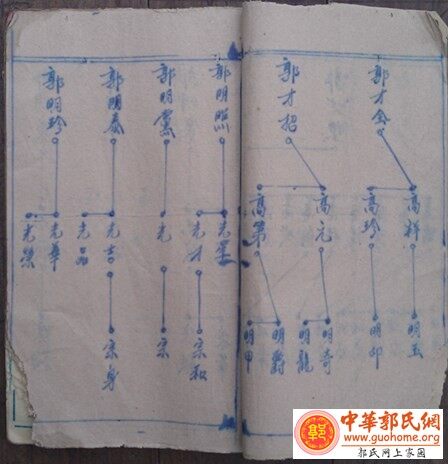 郭才金
高祥
高珍
明玉
明卯
郭才招
高元
高第
明奇
明龍
明爵
明甲
郭明照
光星
光才
宗叙
郭明黨
光
宗
郭明泰
光吉
光品
宗身
郭明珍
光華
光榮
中華郭氏網
www.guohome.org
郭氏网上家園